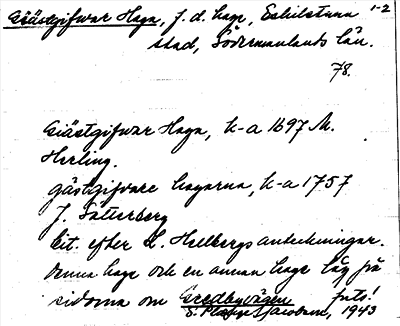 Giästgifwar Haga, f.d. hage, Eskilstuna 1-2
stad, Södermanlands län.
78.
Giästgifwar Haga, k-a 1697 M.
Herling.
gästgifvare hagarna, k-a 1757
J. Säterberg
cit. efter L. Hellbergs anteckningar.
denna hage och en annan hage låg på
sidorna om Gredbyvägen
S. Jacobson, 1943